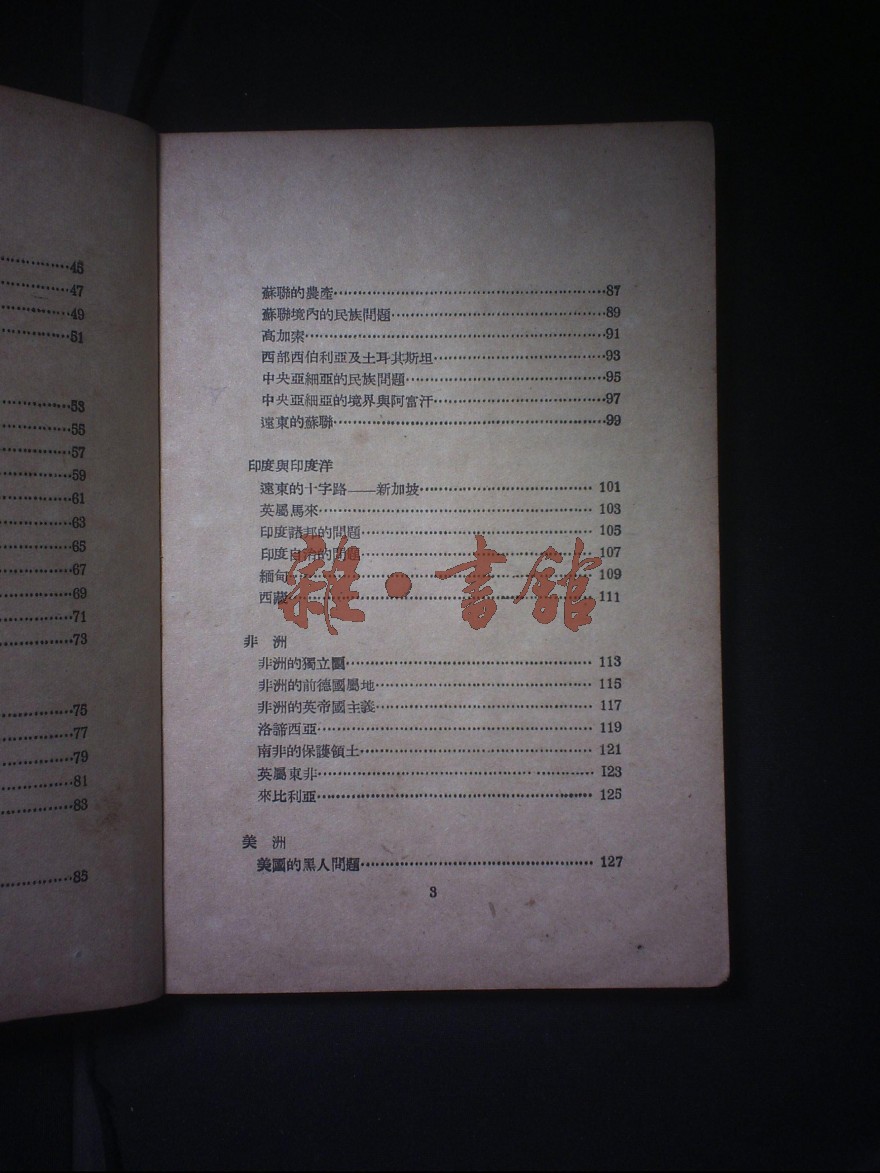 45
47
49
51
53
55
57
59
61
63
65
67
69
71
73
75
77
79
81
83
85
蘇聯的農產……87
蘇聯境內的民族問題……89
高加索……91
西部西伯利亞及土耳其斯坦……93
中央亞細亞的民族問題……95
中央亞細亞的境界與阿富汗……97
遠東的蘇聯……99
印度與印度洋
遠東的十字路——新加坡…… 101
英屬馬來…… 103
印度諸邦的問題…… 105
印度自治的問題…… 107
緬甸…… 109
西藏…… 111
雜·書館
非 洲
非洲的獨立國…… 113
非洲的前德國屬地…… 115
非洲的英帝國主義…… 117
洛諦西亞…… 119
南非的保護領土…… 121
英屬東非…… 123
來比利亞…… 125
美 洲
美國的黑人問題…… 127
3